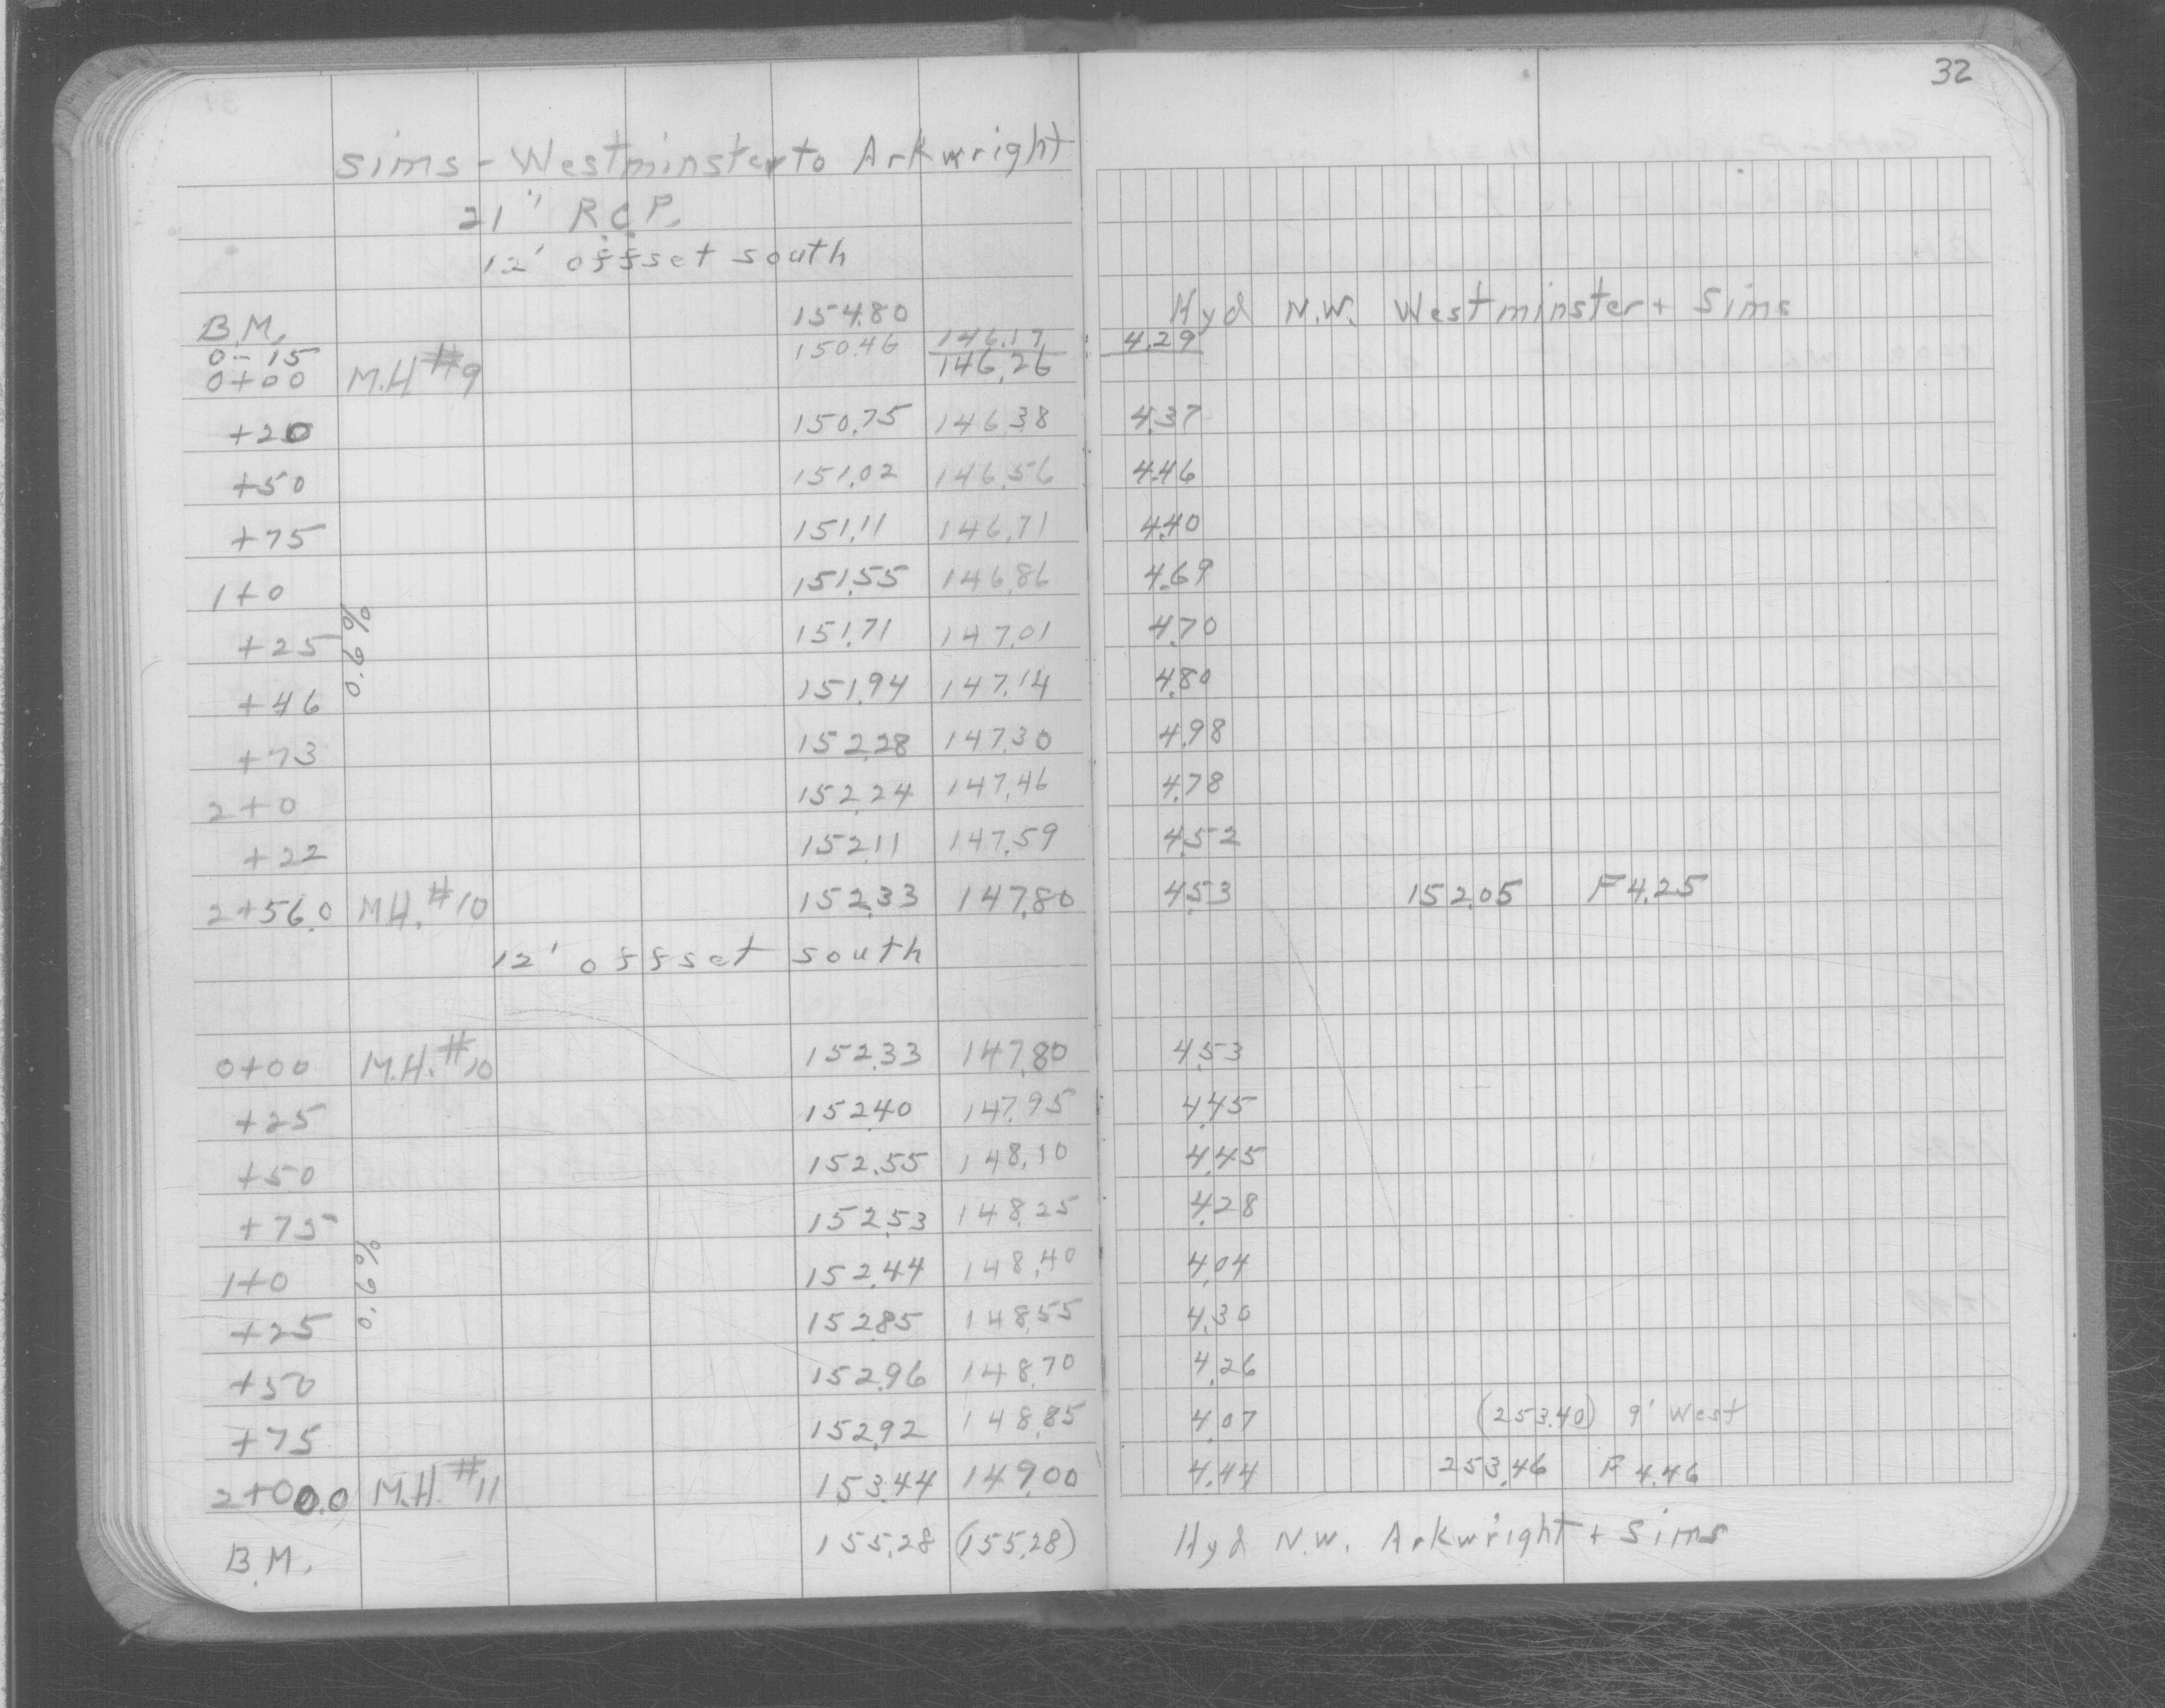 32
Sims - Westminster to Arkwright
21" R.C.P.
12' offset south
B.M. 154.80 Hyd N.W. Westminster + Sims
0-15 150.46 146.17 4.29
0+00 M.H #9 146.26
+20 150.75 146.38 4.37
+50 151.02 146.56 4.46
+75 151.11 146.71 4.40
1+0 151.55 146.86 4.69
+25 151.71 147.01 4.70
0.6%
+46 151.94 147.14 4.80
+73 152.28 147.30 4.98
2+0 152.24 147.46 4.78
+22 152.11 147.59 4.52
2+56.0 M.H. #10 152.33 147.80 4.53 152.05 F 4.25
12' offset south
0+00 M.H. #10 152.33 147.80 4.53
+25 152.40 147.95 4.45
+50 152.55 148.10 4.45
+75 152.53 148.25 4.28
1+0 152.44 148.40 4.04
0.6%
+25 152.85 148.55 4.30
+50 152.96 148.70 4.26
+75 152.92 148.85 4.07 (253.40) 9' West
2+00.0 M.H. #11 153.44 149.00 4.44 253.46 F 4.46
B.M. 155.28 (155.28) Hyd N.W. Arkwright + Sims